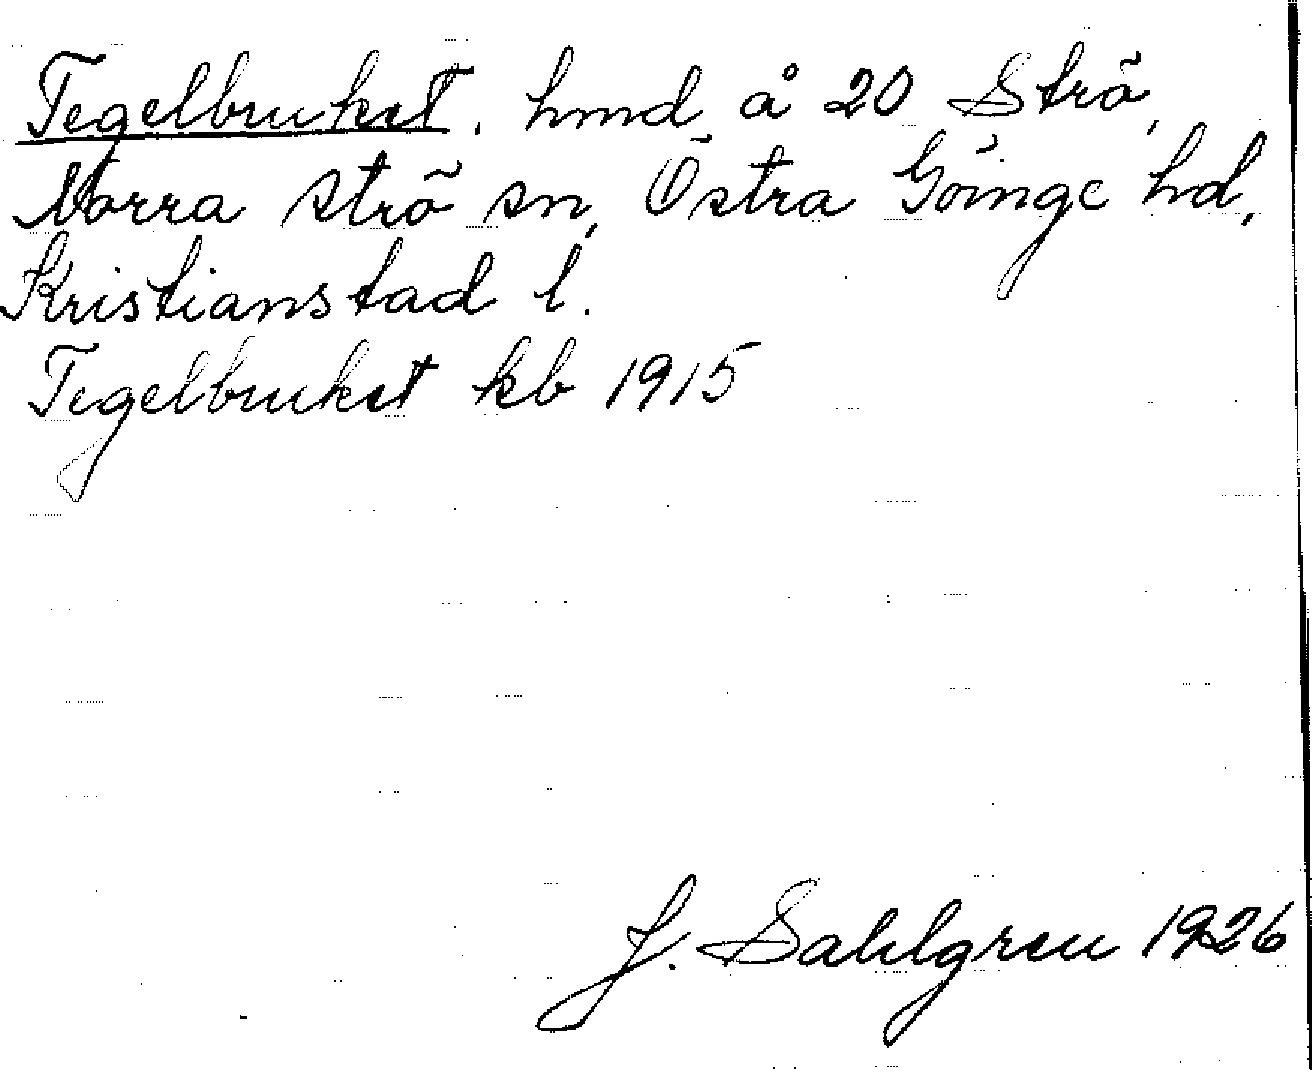 Tegelbruket, hmd å 20 Strö,
Norra Strö sn, Östra Göinge hd,
Kristianstad l.
Tegelbruket kb 1915
J. Sahlgren 1926